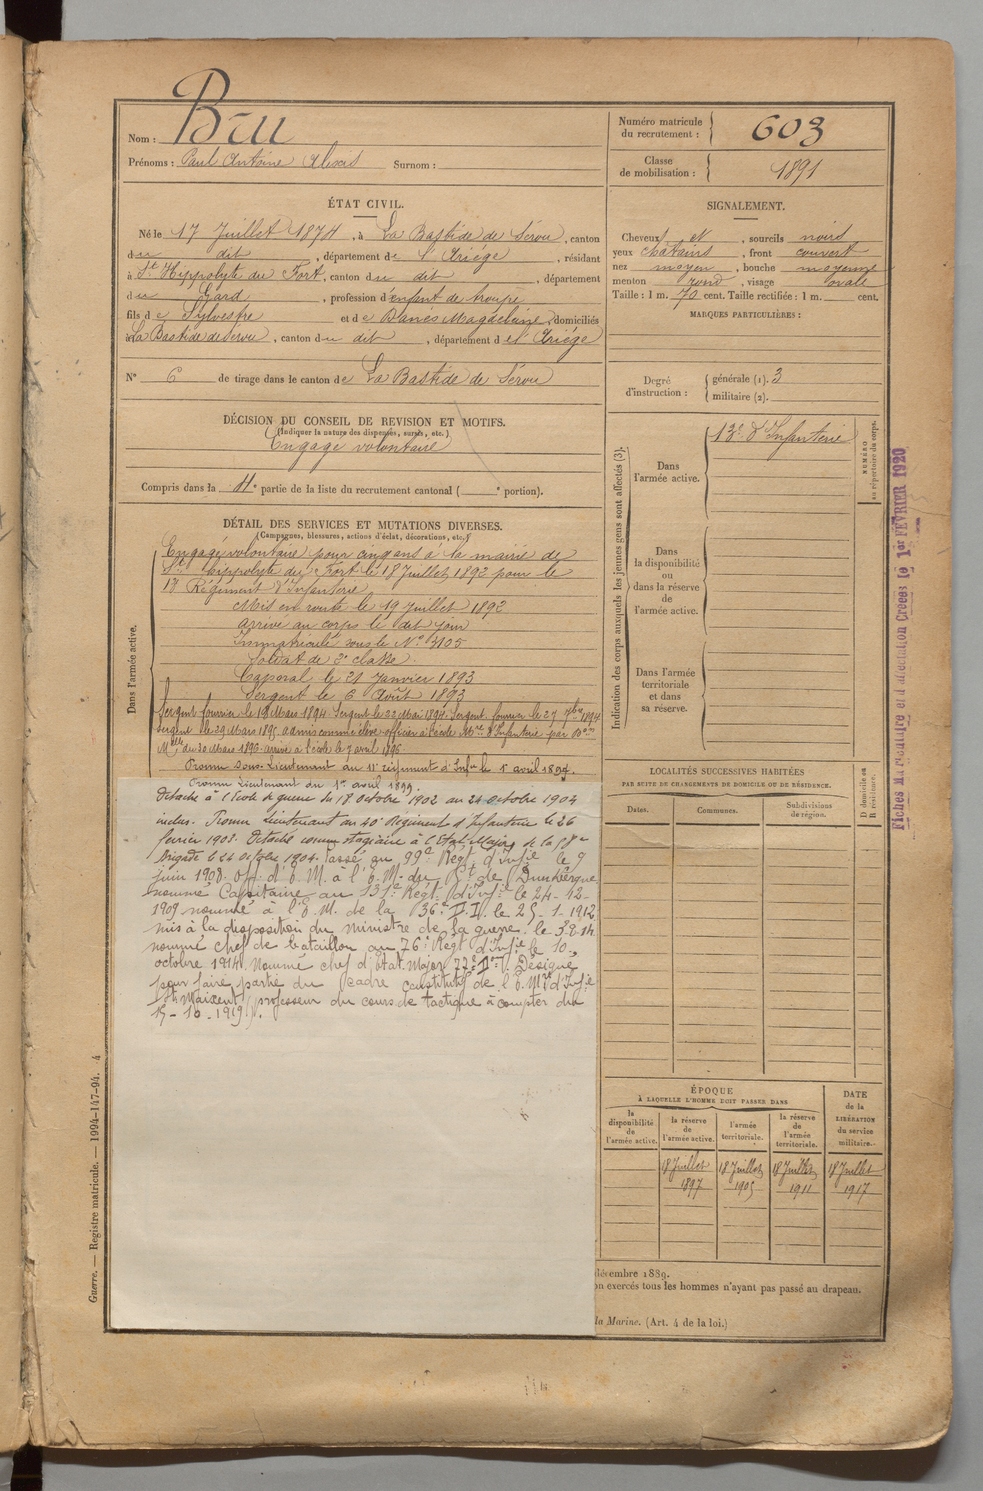 Nom : Bru
Prénoms : Paul Antoine Alexis Surnom :
Numéro matricule du recrutement : 603
Classe de mobilisation : 1891
ÉTAT CIVIL.
Né le 17 Juillet 1874, à La Bastide de Sérou, canton
du dit, département de l'Ariège, résidant
à St Hippolyte du Fort, canton du dit, département
du Gard, profession d'enfant de troupe
fils de Sylvestre et de Banès Magdelaine, domiciliés
à La Bastide de Sérou, canton du dit, département de l'Ariège
N° 6 de tirage dans le canton de La Bastide de Sérou
DÉCISION DU CONSEIL DE REVISION ET MOTIFS.
(Indiquer la nature des dispenses, sursis, etc.)
Engagé volontaire
Compris dans la 4e partie de la liste du recrutement cantonal ( e portion).
DÉTAIL DES SERVICES ET MUTATIONS DIVERSES.
(Campagnes, blessures, actions d'éclat, décorations, etc.)
Dans l'armée active.
Engagé volontaire pour cinq ans à la mairie de
St Hippolyte du Fort le 18 Juillet 1892 pour le
Régiment d'Infanterie
Mis en route le 19 Juillet 1892
arrivé au corps le dit jour
Immatriculé sous le N° 3105
Soldat de 2e classe.
Caporal le 21 Janvier 1893
Sergent le 6 Août 1893
Sergent fourrier le 19 Mars 1894. Sergent le 22 Mai 1894. Sergent fourrier le 27 7bre 1894
Sergent le 29 Mars 1895. admis comme élève officier à l'école Mre d'Infanterie par Don
Mlle du 30 Mars 1896. arrivé à l'école le 9 avril 1896
Promu Sous-Lieutenant au 11e régiment d'Infie le 1er avril 1897.
Promu Lieutenant du 1er avril 1899.
Détaché à l'École de guerre du 18 octobre 1902 au 24 octobre 1904
inclus. Promu Lieutenant au 40e Régiment d'Infanterie le 26
février 1903. Détaché comme stagiaire à l'Etat-Major de la
Brigade le 24 octobre 1904. Passé au 99e Régt d'Infie le 9
juin 1908. Off. d'O.M. à l'E.M. du Gt de Dunkerque
nommé Capitaine au 131e Régt d'Infie le 24-12-
1909 nommé à l'E.M. de la 36e D.I. le 25-1-1912
mis à la disposition du ministre de la guerre le 3.2.14
nommé chef de bataillon au 76e Régt d'Infie le 10
octobre 1914. Nommé chef d'Etat-Major 77e Don. Désigné
pour faire partie du cadre constitutif de l'E. Mre d'Infie
St Maixent (professeur du cours de tactique à compter du
15-10-1919).
SIGNALEMENT.
Cheveux et, sourcils noirs
yeux chatains, front couvert
nez moyen, bouche moyenne
menton rond, visage ovale
Taille : 1 m. 70 cent. Taille rectifiée : 1 m. cent.
MARQUES PARTICULIÈRES :
Degré d'instruction : générale (1). 3
militaire (2).
Indication des corps auxquels les jeunes gens sont affectés (3).
Dans l'armée active.
13e d'Infanterie
NUMÉRO au répertoire du corps.
Dans la disponibilité ou dans la réserve de l'armée active.
Dans l'armée territoriale et dans sa réserve.
LOCALITÉS SUCCESSIVES HABITÉES
PAR SUITE DE CHANGEMENTS DE DOMICILE OU DE RÉSIDENCE.
Dates. Communes. Subdivisions de région. D domicile ou R résidence.
ÉPOQUE
À LAQUELLE L'HOMME DOIT PASSER DANS
la disponibilité de l'armée active.
la réserve de l'armée active.
l'armée territoriale.
la réserve de l'armée territoriale.
DATE de la LIBÉRATION du service militaire.
18 Juillet 1897
18 Juillet 1905
18 Juillet 1911
18 Juillet 1917
décembre 1889.
on exercés tous les hommes n'ayant pas passé au drapeau.
la Marine. (Art. 4 de la loi.)
Guerre. — Registre matricule. — 1994-147-94. 4
Fiches Matriculaire et d'affectation Créées le 1er FÉVRIER 1920